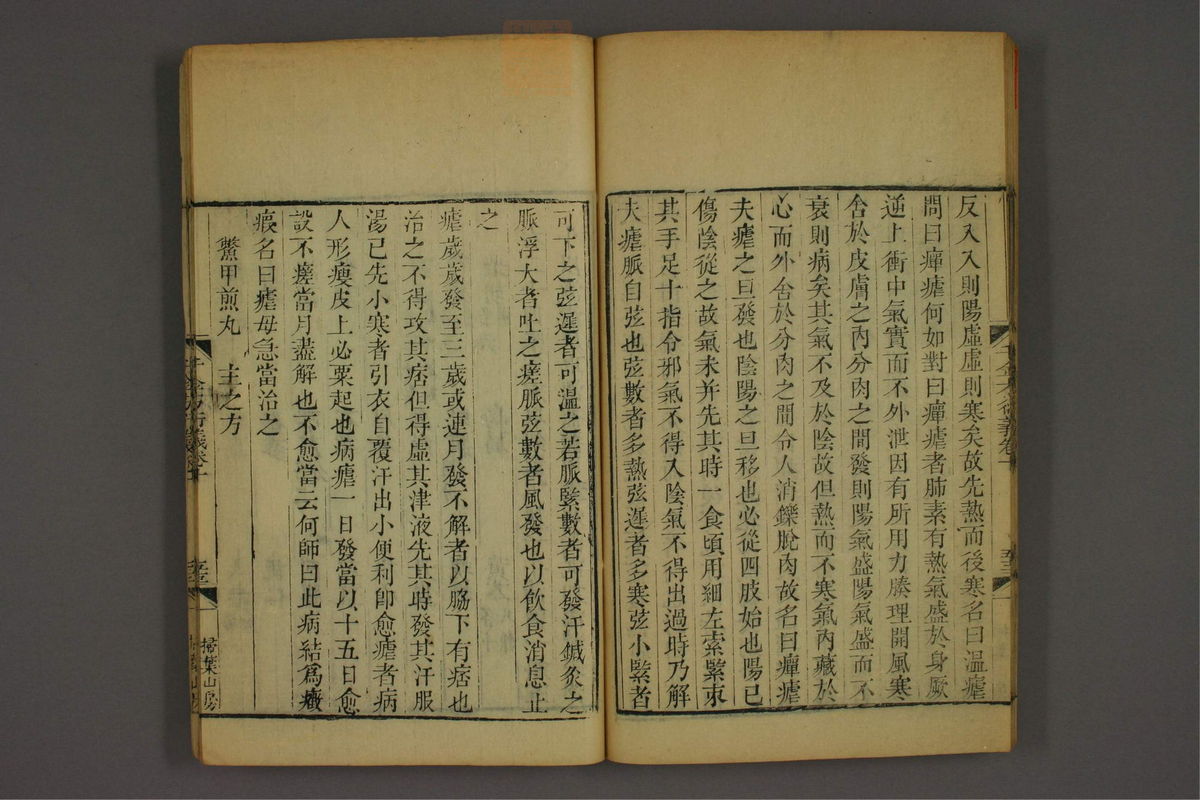 反入入則陽虛虛則寒矣故先熱而後寒名曰温瘧
問曰癉瘧何如對曰癉瘧者肺素有熱氣盛於身厥
逆上衝中氣實而不外泄因有所用力腠理開風寒
舍於皮膚之內分肉之間發則陽氣盛陽氣盛而不
衰則病矣其氣不及於陰故但熱而不寒氣內藏於
心而外舍於分肉之間令人消鑠脫肉故名曰癉瘧
夫瘧之且發也陰陽之且移也必從四肢始也陽已
傷陰從之故氣未并先其時一食頃用細左索緊束
其手足十指令邪氣不得入陰氣不得出過時乃解
夫瘧脈自弦也弦數者多熱弦遲者多寒弦小緊者
可下之弦遲者可温之若脈緊數者可發汗鍼灸之
脈浮大者吐之瘥脈弦數者風發也以飲食消息止
之
瘧歲歲發至三歲或連月發不解者以脇下有痞也
治之不得攻其痞但得虛其津液先其時發其汗服
湯已先小寒者引衣自覆汗出小便利卽愈瘧者病
人形瘦皮上必粟起也病瘧一日發當以十五日愈
設不瘥當月盡解也不愈當云何師曰此病結爲癥
瘕名曰瘧母急當治之
鱉甲煎丸　主之方
千金方衍義卷十
掃葉山房